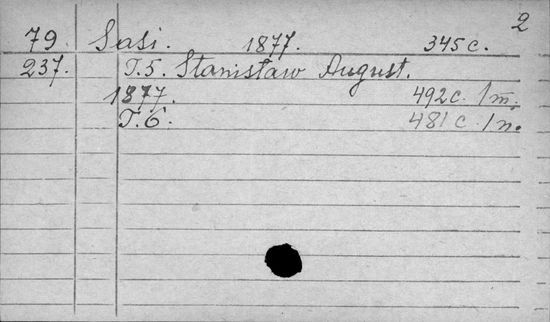 2
79 Sasi. 1877. 345c.
237. T.5. Stanisław August.
1877. 492c. 1m.
T.6. 481c. 1n.